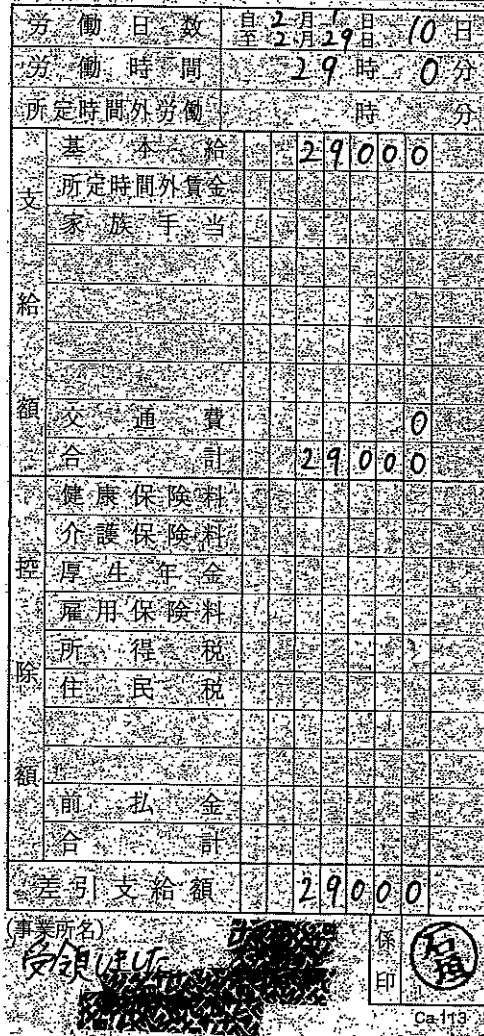 労働日数 自2月1日 至2月29日 10日
労働時間 29時0分
所定時間外労働 時 分
支給額
基本給 29000
所定時間外賃金
家族手当
交通費 0
合計 29000
控除額
健康保険料
介護保険料
厚生年金
雇用保険料
所得税
住民税
前払金
合計
差引支給額 29000
(事業所名)
受領しました
係印 石垣
Ca.113